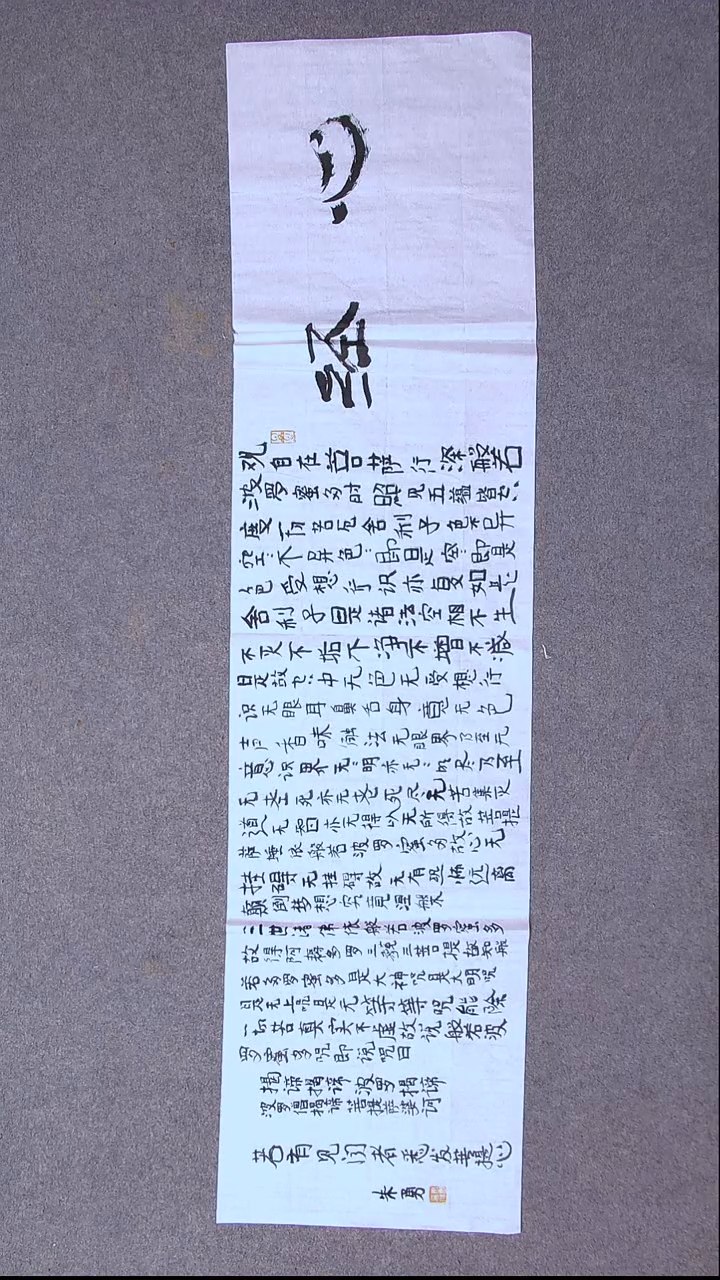 心经
观自在菩萨行深般若
波罗蜜多时照见五蕴皆空
度一切苦厄舍利子色不异
空々不异色々即是空々即是
色受想行识亦复如是
舍利子是诸法空相不生
不灭不垢不净不增不减
是故空中无色无受想行
识无眼耳鼻舌身意无色
声香味触法无眼界乃至无
意识界无々明亦无々明尽乃至
无老死亦无老死尽无苦集灭
道无智亦无得以无所得故菩提
萨埵依般若波罗蜜多故心无
挂碍无挂碍故无有恐怖远离
颠倒梦想究竟涅槃
三世诸佛依般若波罗蜜多
故得阿耨多罗三藐三菩提故知般
若多罗蜜多是大神咒是大明咒
是无上咒是无等等咒能除
一切苦真实不虚故说般若波
罗蜜多咒即说咒曰
揭谛揭谛波罗揭谛
波罗僧揭谛菩提萨婆诃
若有见闻者悉发菩提心
朱勇